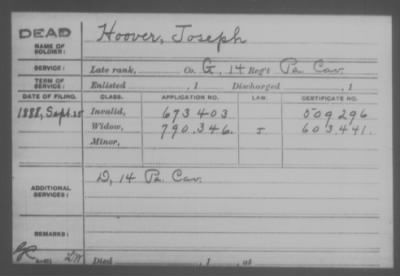 DEAD Hoover, Joseph
NAME OF
SOLDIER:
SERVICE: Late rank, Co. G, 14 Reg't Pa Cav.
TERM OF
SERVICE: Enlisted , 1 Discharged , 1
DATE OF FILING. CLASS. APPLICATION NO. LAW. CERTIFICATE NO.
1888, Sept. 25 Invalid, 673403 509296
Widow, 790.346. 603.441.
Minor,
ADDITIONAL
SERVICES: D, 14 Pa Cav.
REMARKS:
Died , 1 , at